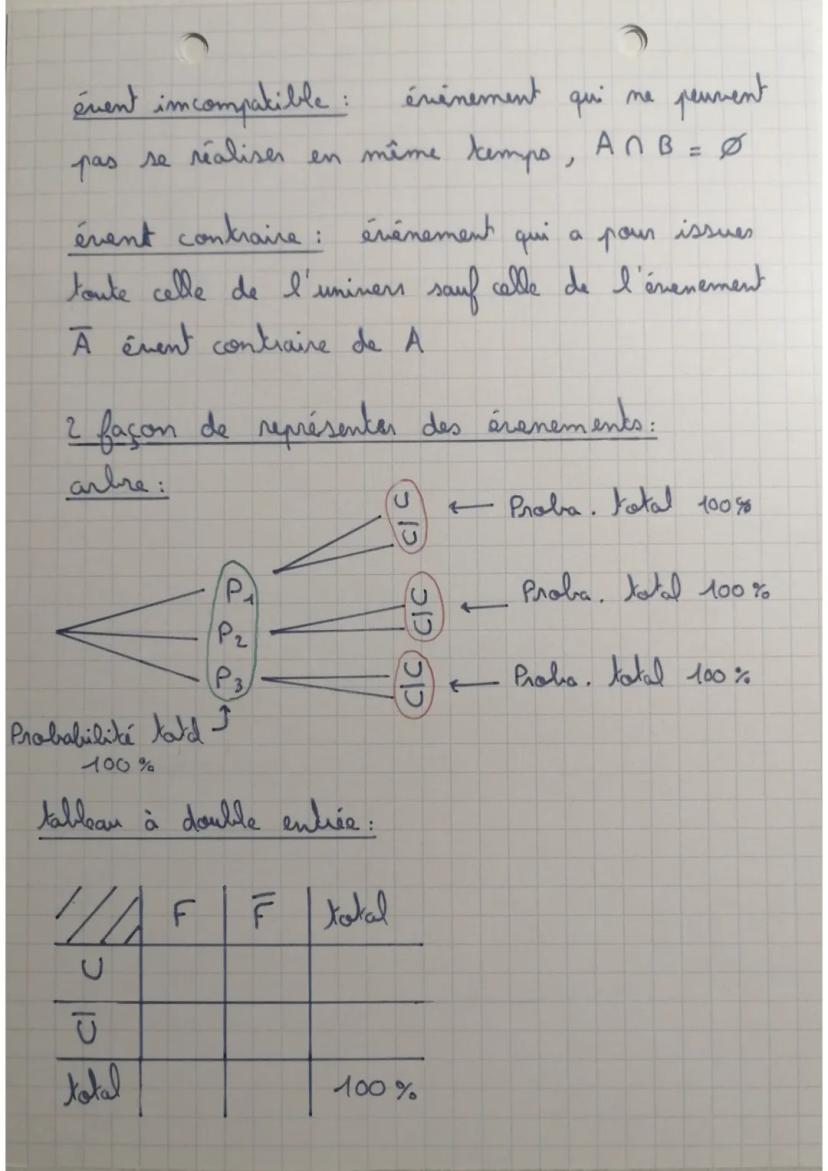 évent imcompatible : événement qui ne peuvent
pas se réaliser en même temps, A ∩ B = Ø
évent contraire : événement qui a pour issues
toute celle de l'univers sauf celle de l'évenement
A̅ évent contraire de A
2 façon de représenter des évenements :
arbre :
U
U̅
← Proba. total 100%
P1
U
U̅
← Proba. total 100%
P2
P3
U
U̅
← Proba. total 100%
Probabilité total
100%
tableau à double entrée :
F F̅ total
U
U̅
total 100%